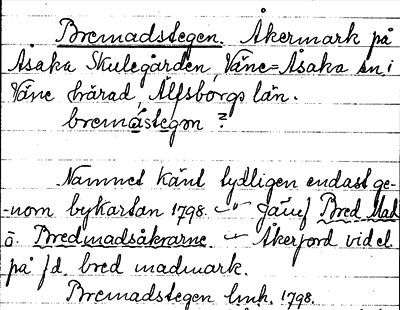 Bremadstegen. Åkermark på
Åsaka Skulegården, Väne-Åsaka sn i
Väne härad, Älfsborgs län.
bremåstegon ?
Namnet känt tydligen endast ge-
-nom bykartan 1798. — Jämf Bred Mad
o. Bredmadsåkrarne. — Åkerjord vid el.
på f.d. bred madmark.
Bremadstegen lmh. 1798.